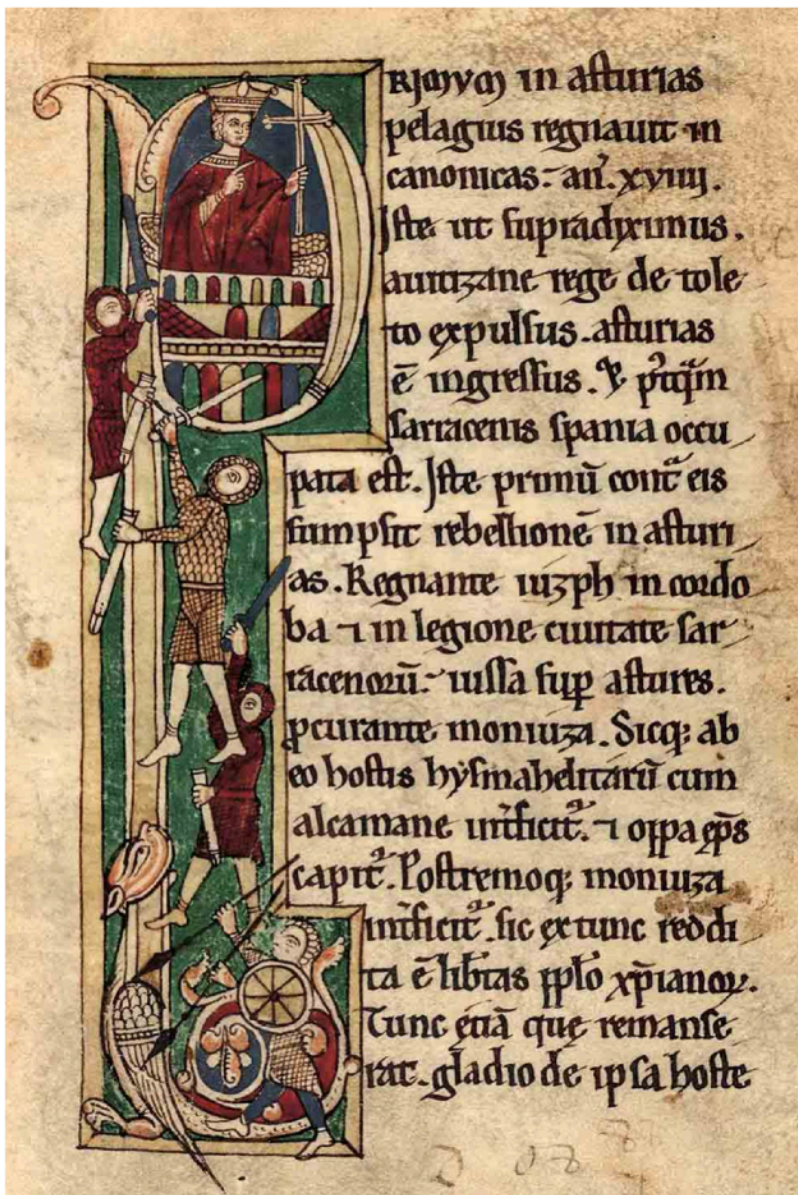 PRIMUM in asturias
pelagius regnauit in
canonicas. an̄. xviiij.
Iste ut supradiximus.
auitizane rege de tole
to expulsus. asturias
ē ingressus. & p̄tq̄m
sarracenis spania occu
pata est. Iste primū cont̄ eis
sumpsit rebellionē in asturi
as. Regnante iuzph in cordo
ba ⁊ in legione ciuitate sar
racenorū. iussa sup̄ astures.
ꝓcurante moniuza. Sicq; ab
eo hostis hysmahelitarū cum
alcamane int̄ficit᷑. ⁊ oppa ep̄s
capit᷑. Postremoq; moniuza
int̄ficit᷑. sic ex tunc reddi
ta ē lib̄tas pp̄lo xp̄ianoꝝ.
Tunc etiā que remanse
rat. gladio de ipsa hoste